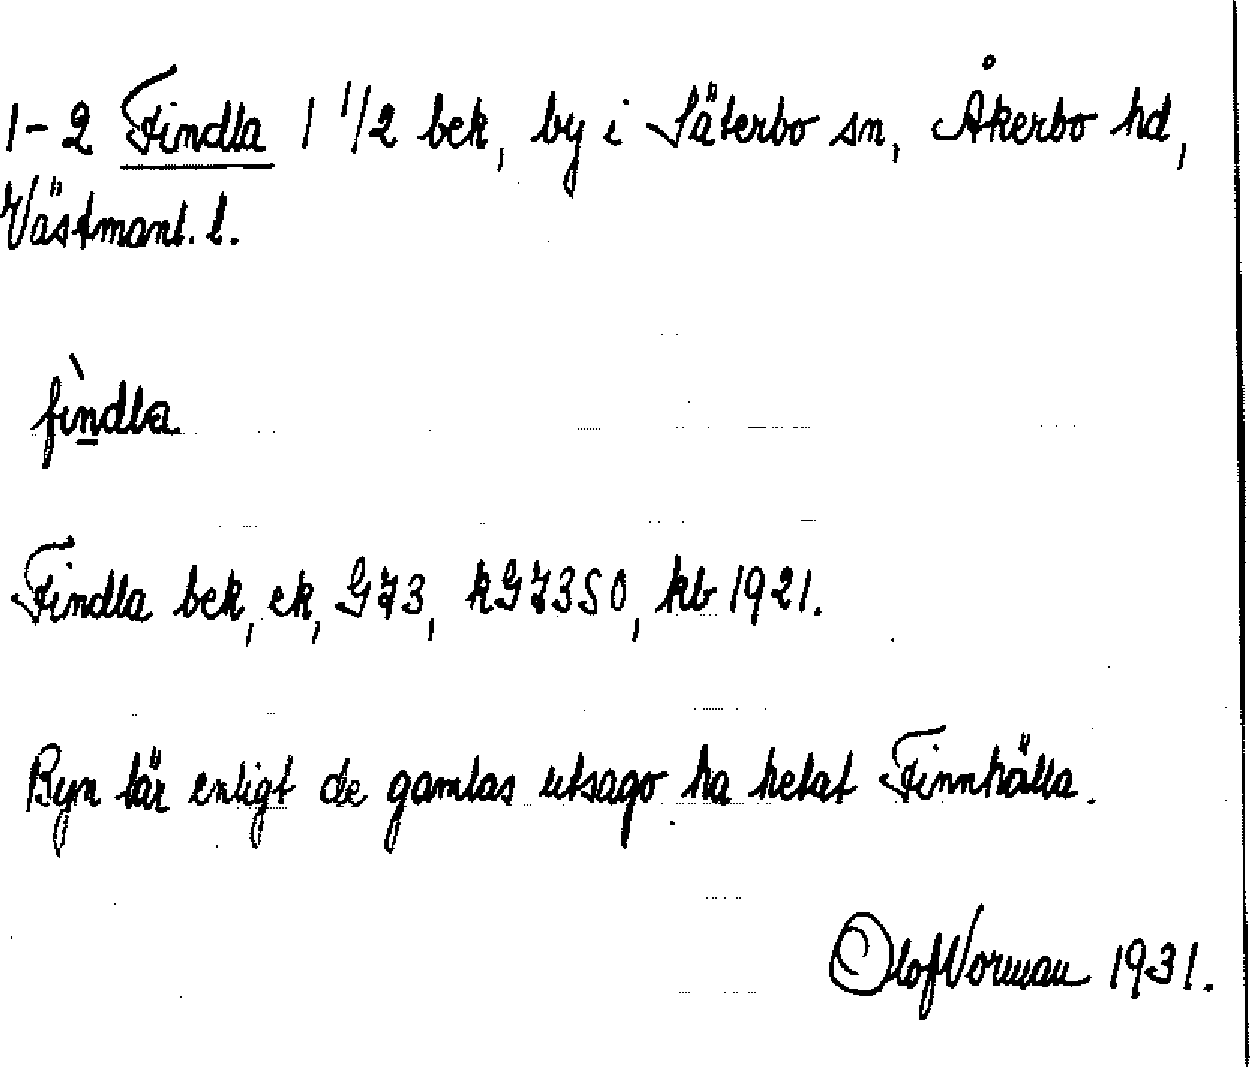 1-2 Findla 1 1/2 bek, by i Säterbo sn, Åkerbo hd,
Västmanl. l.
fìndla
Findla bek, ek, GJ3, kGJ350, kb 1921.
Byn lär enligt de gamlas utsago ha hetat Finnhälla.
Olof Vorman 1931.